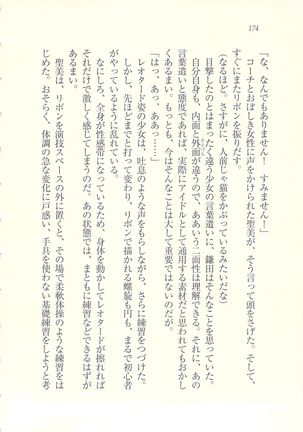 174
「な、なんでもありません！　すみません！」
コーチとおぼしき女性に声をかけられた聖美が、そう言って頭をさげた。そして、
すぐにまたリボンを振りだす。
（なるほど。さすがに、人前じゃ猫をかぶっているみたいだな）
目撃したのとはまったく違う少女の言葉遣いに、鎌田はそんなことを思っていた。
自分自身も、内面と外面が違うので、ああいう二面性は理解できる。それに、あの
言葉遣いと態度であれば、実際にアイドルとして通用する素材だと思われてもおかし
くあるまい。もっとも、今はそんなことは大して重要ではないのだが。
「はっ、あっ、ああっ……」
レオタード姿の少女は、吐息のような声をもらしながら、さらに練習をつづけた。
しかし、先ほどまでと打って変わり、リボンで描かれる螺旋も円も、まるで初心者
がやっているように乱れている。
なにしろ、全身が性感帯になっているため、身体を動かしてレオタードが擦れれば
それだけで激しく感じてしまうのだ。あの状態では、まともに練習などできるはずが
あるまい。
聖美は、リボンを演技スペースの外に置くと、その場で柔軟体操のような練習をは
じめた。おそらく、体調の急な変化に戸惑い、手具を使わない基礎練習をしようと考